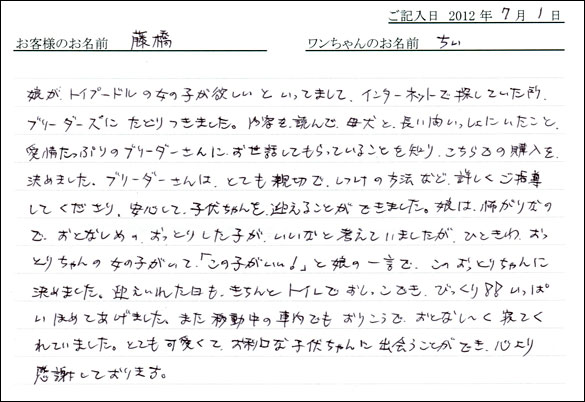 ご記入日 2012 年 7 月 1 日
お客様のお名前 藤橋 ワンちゃんのお名前 ちぃ
娘が、トイプードルの女の子が欲しいといってまして、インターネットで探していた所、
ブリーダーズにたどりつきました。内容を読んで、母犬と、長い間いっしょにいたこと、
愛情たっぷりのブリーダーさんにお世話してもらっていることを知り、こちらでの購入を
決めました。ブリーダーさんは、とても親切で、しつけの方法など、詳しくご指導
してくださり、安心して、子犬ちゃんを迎えることができました。娘は、怖がりなの
で、おとなしめの、おっとりした子が、いいなと考えていましたが、ひときわ、おっ
とりちゃんの女の子がいて、「この子がいい!」と娘の一言で、このおっとりちゃんに
決めました。迎えいれた日も、きちんとトイレでおしっこでき、びっくり!!いっぱ
いほめてあげました。また移動中の車内でもおりこうで、おとなし〜く寝てく
れていました。とても可愛くて、お利口な子犬ちゃんに出会うことができ、心より
感謝しております。